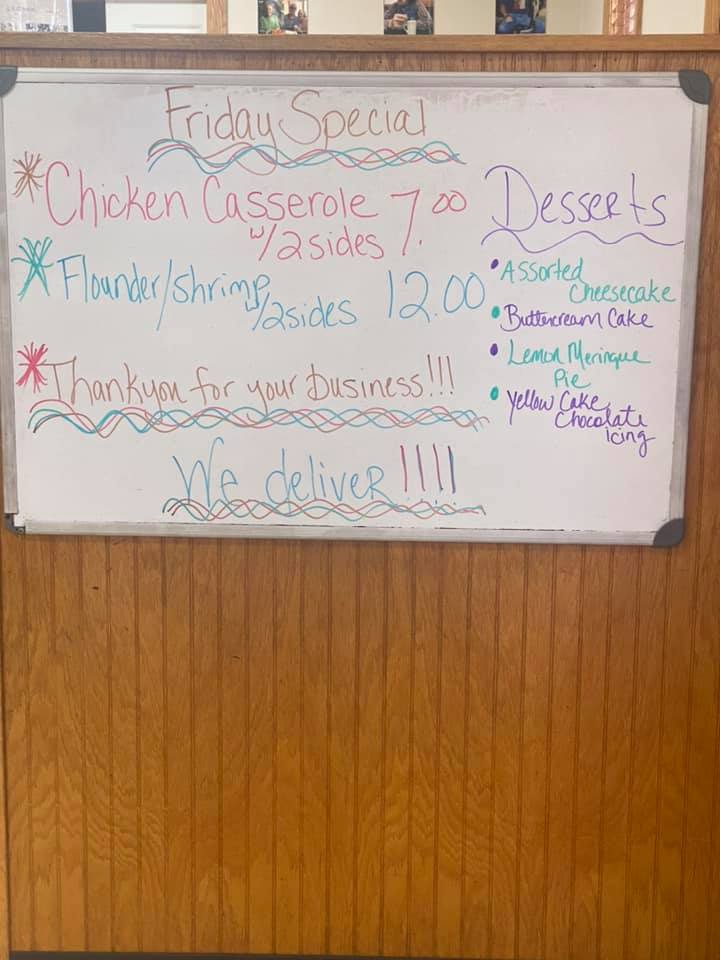 Friday Special
Chicken Casserole 7.00
w/2 sides
Flounder/shrimp 12.00
w/2sides
Thankyou for your business!!!
We deliver!!!!
Desserts
Assorted
Cheesecake
Buttercream Cake
Lemon Meringue
Pie
Yellow Cake
Chocolate
icing